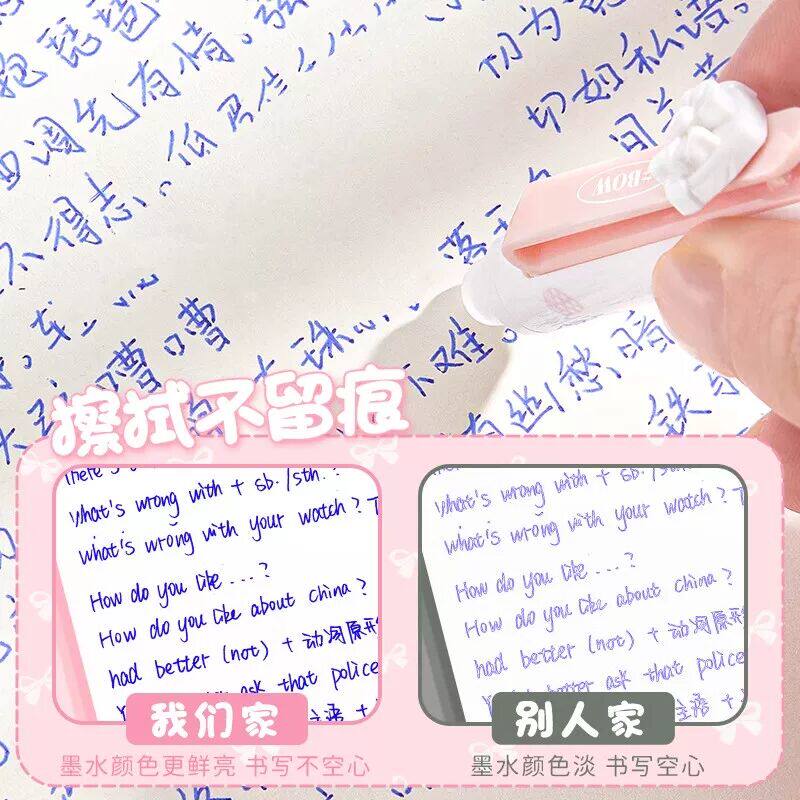 抱琵琶
调先有情。弦
不得志。低眉信
切为
切如私语。
BOW
嘈嘈
珠
难。
有幽愁暗
铁
擦拭不留痕
there's
what's wrong with + sb./sth.?
what's wrong with your watch? T
How do you like ...?
How do you like about china?
had better (not) + 动词原形
ask that police
主语 +
我们家
墨水颜色更鲜亮 书写不空心
what's wrong with + sb./sth.
what's wrong with your watch? T
How do you like ...?
How do you like about china?
had better (not) + 动词原形
better ask that police
主语 +
别人家
墨水颜色淡 书写空心